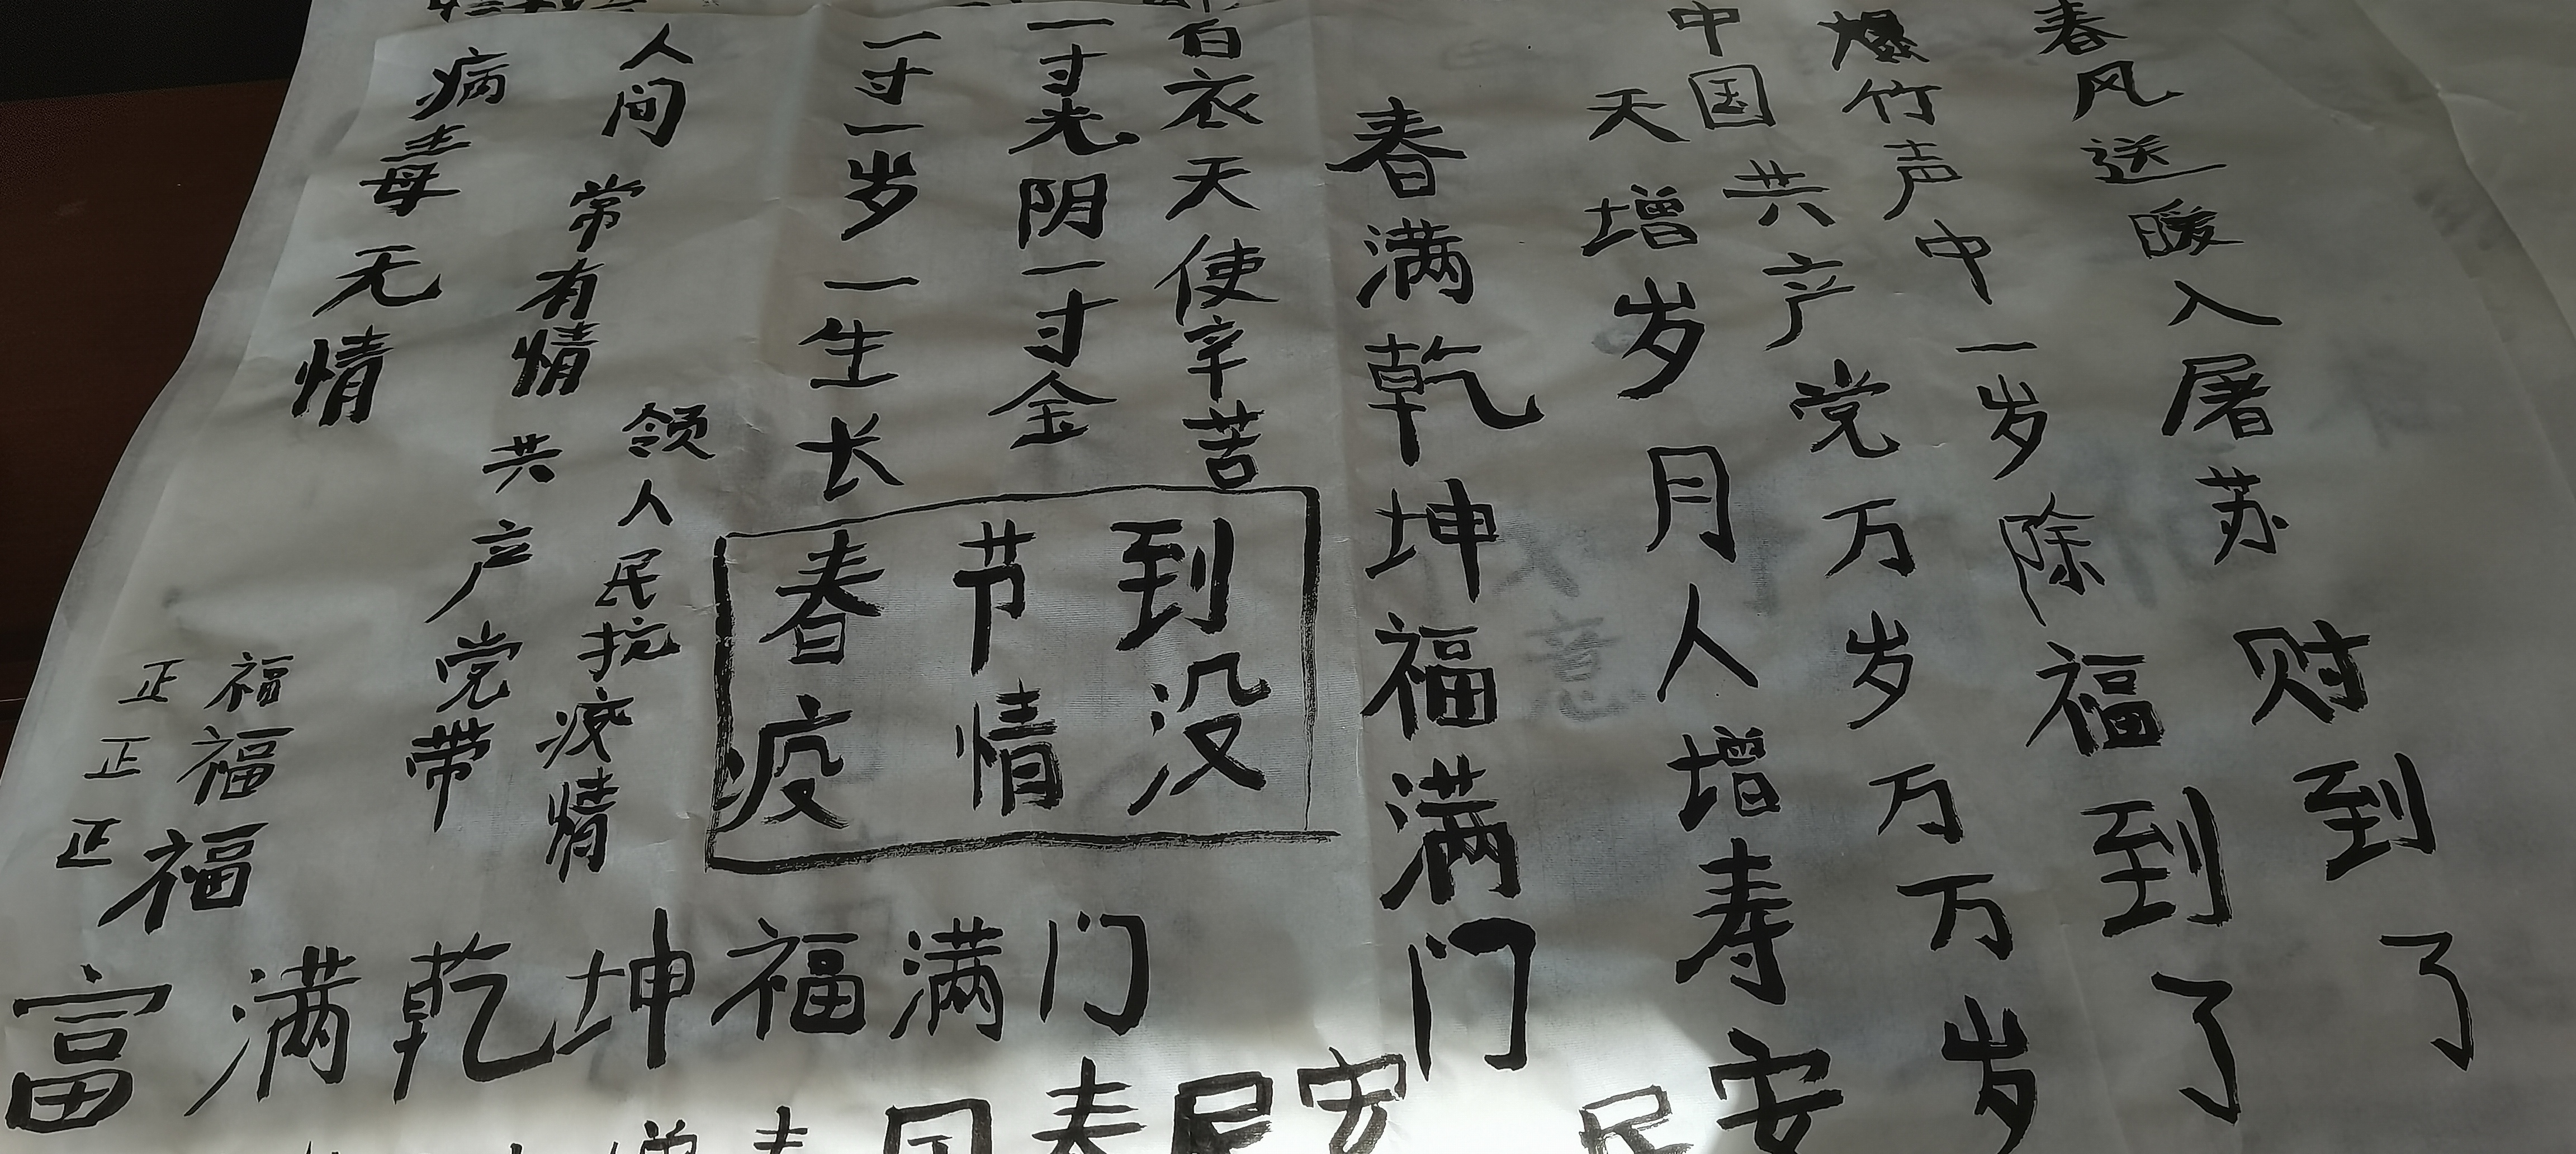 春风送暖入屠苏
财到了
爆竹声中一岁除
福到了
中国共产党万岁万万岁
天增岁月人增寿
春满乾坤福满门
白衣天使辛苦
一寸光阴一寸金
一寸一岁一生长
春节到
疫情没
人间常有情
病毒无情
共产党带
领人民抗疫情
正福
正福
正福
富满乾坤福满门
安
安